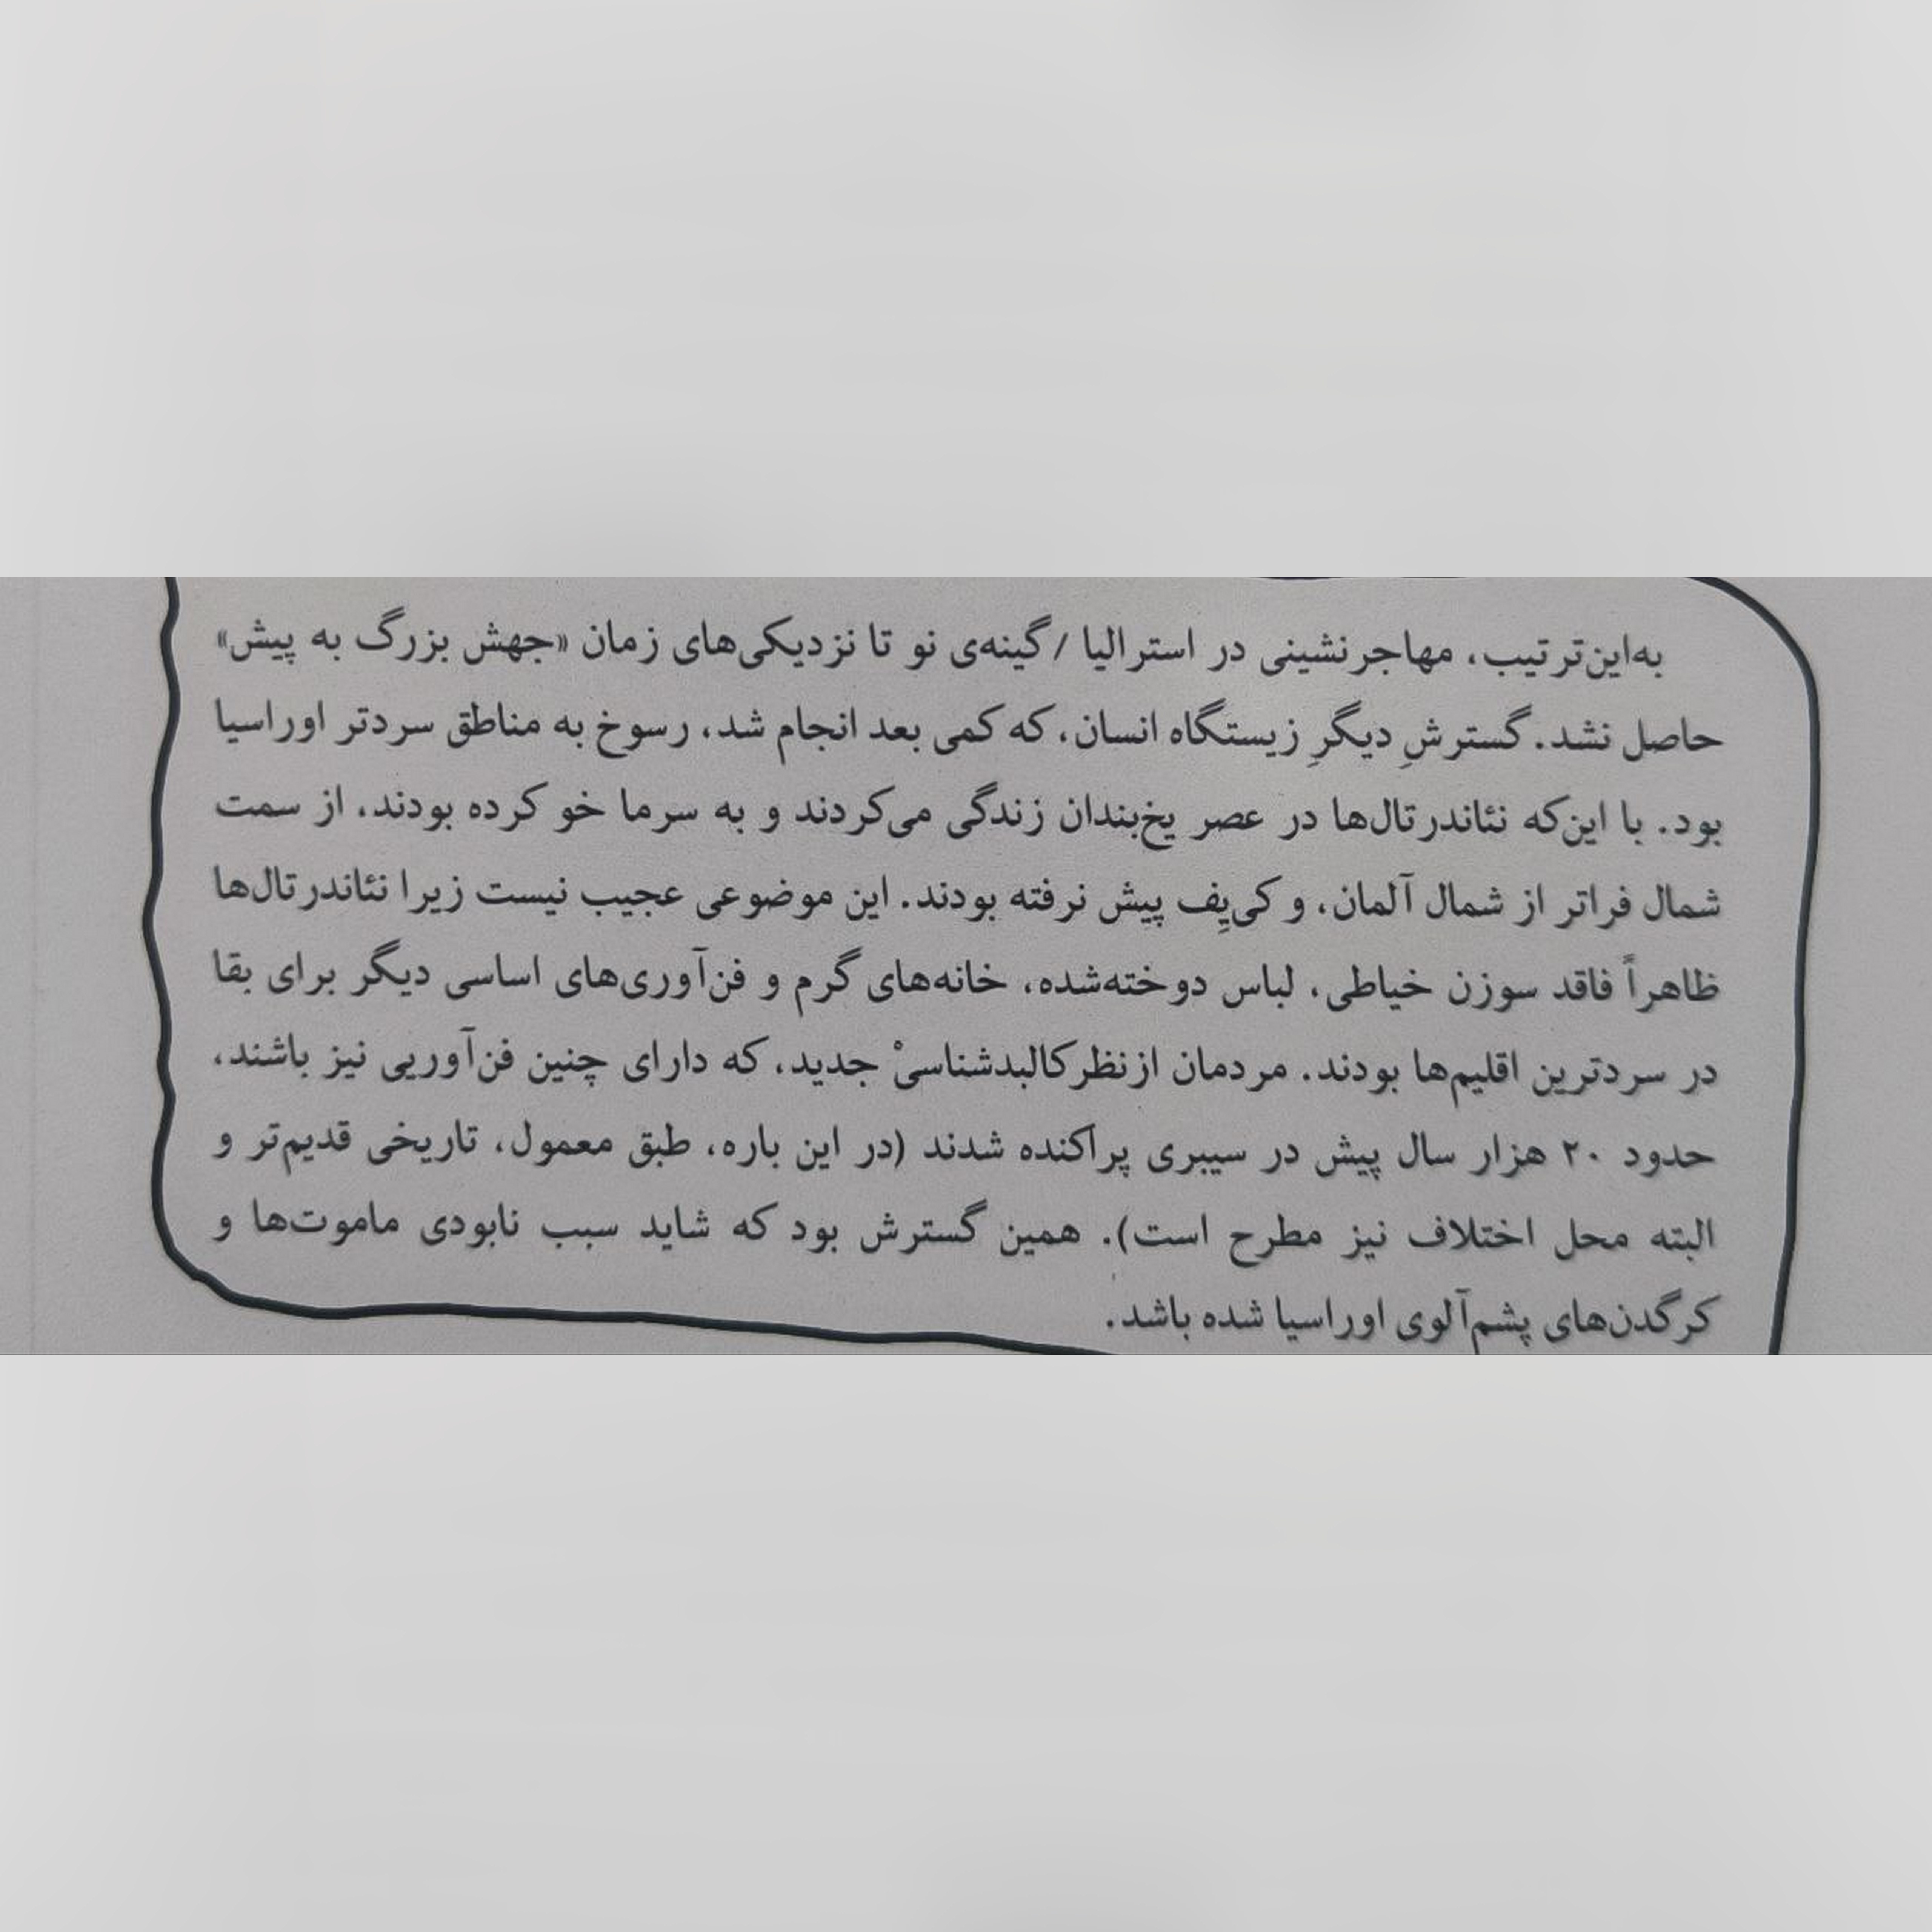 به‌این‌ترتیب، مهاجرنشینی در استرالیا /گینه‌ی نو تا نزدیکی‌های زمان «جهش بزرگ به پیش»
حاصل نشد. گسترشِ دیگرِ زیستگاه انسان، که کمی بعد انجام شد، رسوخ به مناطق سردتر اوراسیا
بود. با این‌که نئاندرتال‌ها در عصر یخ‌بندان زندگی می‌کردند و به سرما خو کرده بودند، از سمت
شمال فراتر از شمال آلمان، و کی‌یِف پیش نرفته بودند. این موضوعی عجیب نیست زیرا نئاندرتال‌ها
ظاهراً فاقد سوزن خیاطی، لباس دوخته‌شده، خانه‌های گرم و فن‌آوری‌های اساسی دیگر برای بقا
در سردترین اقلیم‌ها بودند. مردمان ازنظر کالبدشناسیْ جدید، که دارای چنین فن‌آوریی نیز باشند،
حدود ۲۰ هزار سال پیش در سیبری پراکنده شدند (در این باره، طبق معمول، تاریخی قدیم‌تر و
البته محل اختلاف نیز مطرح است). همین گسترش بود که شاید سبب نابودی ماموت‌ها و
کرگدن‌های پشم‌آلوی اوراسیا شده باشد.